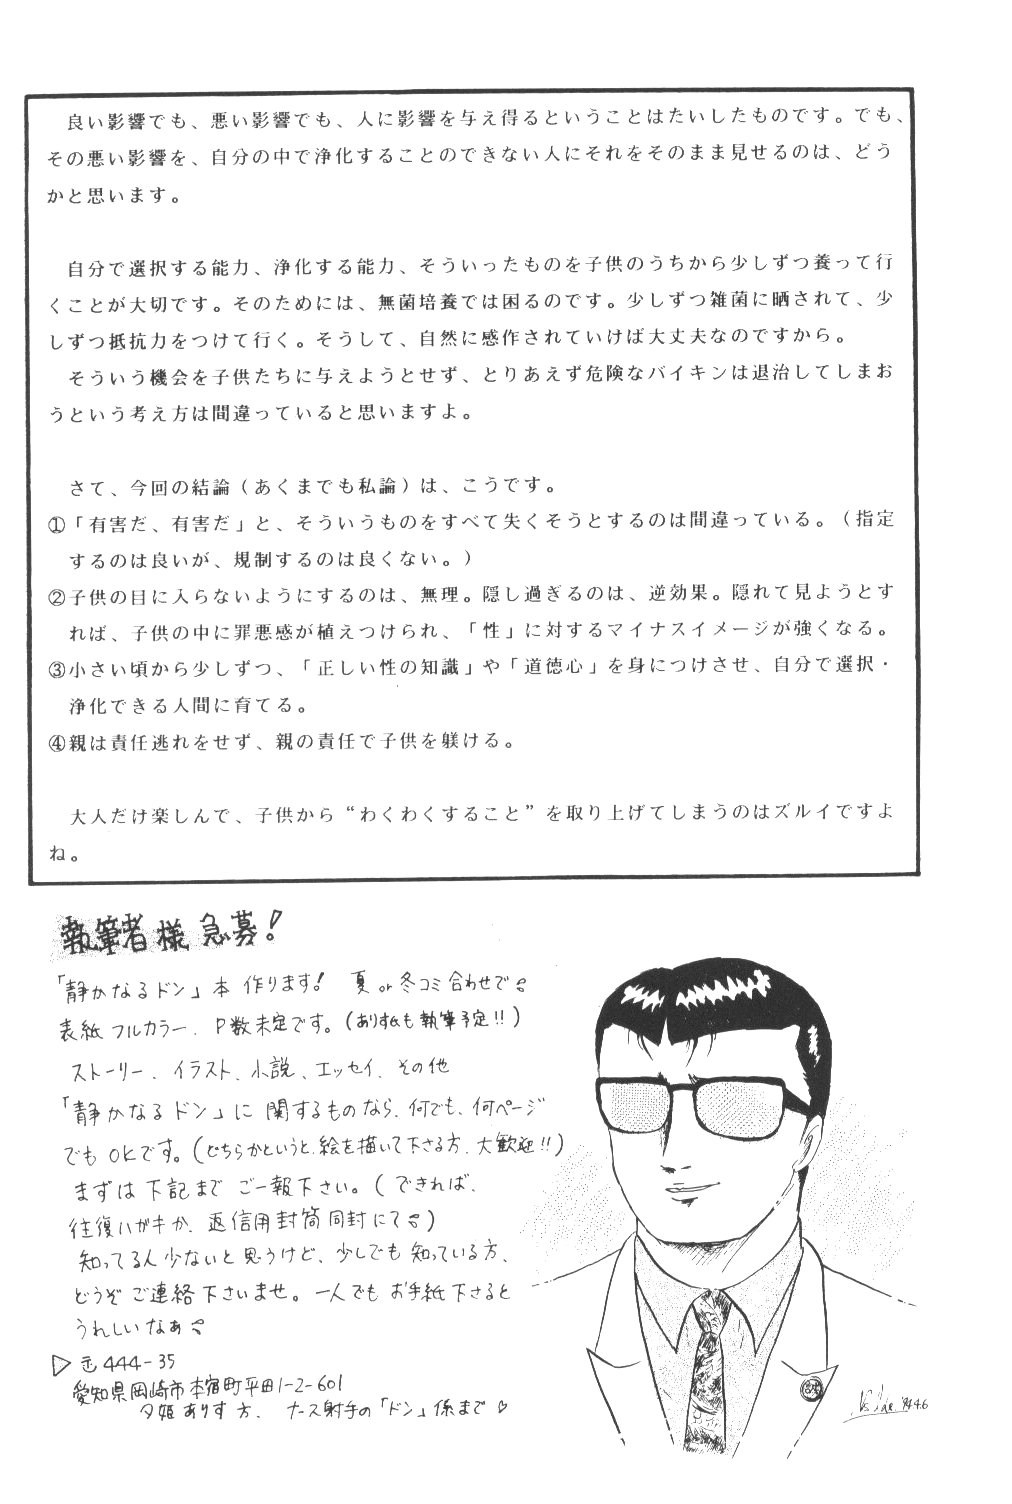 良い影響でも、悪い影響でも、人に影響を与え得るということはたいしたものです。でも、
その悪い影響を、自分の中で浄化することのできない人にそれをそのまま見せるのは、どう
かと思います。
自分で選択する能力、浄化する能力、そういったものを子供のうちから少しずつ養って行
くことが大切です。そのためには、無菌培養では困るのです。少しずつ雑菌に晒されて、少
しずつ抵抗力をつけて行く。そうして、自然に感作されていけば大丈夫なのですから。
そういう機会を子供たちに与えようとせず、とりあえず危険なバイキンは退治してしまお
うという考え方は間違っていると思いますよ。
さて、今回の結論（あくまでも私論）は、こうです。
①「有害だ、有害だ」と、そういうものをすべて失くそうとするのは間違っている。（指定
するのは良いが、規制するのは良くない。）
②子供の目に入らないようにするのは、無理。隠し過ぎるのは、逆効果。隠れて見ようとす
れば、子供の中に罪悪感が植えつけられ、「性」に対するマイナスイメージが強くなる。
③小さい頃から少しずつ、「正しい性の知識」や「道徳心」を身につけさせ、自分で選択・
浄化できる人間に育てる。
④親は責任逃れをせず、親の責任で子供を躾ける。
大人だけ楽しんで、子供から“わくわくすること”を取り上げてしまうのはズルイですよ
ね。
執筆者様急募！
「静かなるドン」本 作ります！ 夏 or 冬コミ合わせで♪
表紙フルカラー、P数未定です。（ありすも執筆予定!!）
ストーリー、イラスト、小説、エッセイ、その他
「静かなるドン」に関するものなら、何でも、何ページ
でもOKです。（どちらかというと、絵を描いて下さる方、大歓迎!!）
まずは下記まで ご一報下さい。（できれば、
往復ハガキか、返信用封筒同封にて♪）
知ってる人少ないと思うけど、少しでも知っている方、
どうぞご連絡下さいませ。一人でもお手紙下さると
うれしいなぁ♪
▷〒444-35
愛知県岡崎市本宿町平田1-2-601
夕姫ありす方、ナース射手の「ドン」係まで♡
'94.4.6